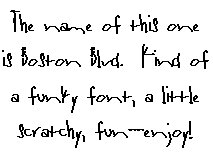 The name of this one
is Boston Blvd. Kind of
a funky font, a little
scratchy, fun--enjoy!